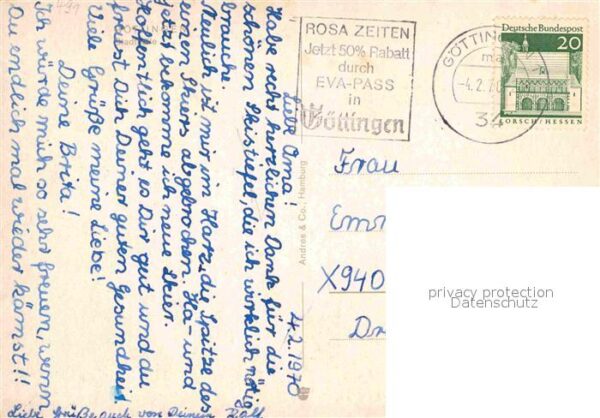 491
4.2.1970
Liebe Oma!
Habe recht herzlichen Dank für die
schönen Skistiefel, die ich wirklich nötig
brauche.
Neulich ist mir im Harz die Spitze des
einen Skurs abgebrochen. Ha- und
jetzt bekomme ich neue Skier.
Hoffentlich geht es Dir gut und du
freust Dich Deiner guten Gesundheit.
Viele Grüße meine Liebe!
Deine Brita!
Ich würde mich so sehr freuen, wenn
Du endlich mal wieder kämst!!
Liebe Grüße auch von Deinem Ralf
Andres & Co., Hamburg
ROSA ZEITEN
Jetzt 50% Rabatt
durch
EVA-PASS
in
Göttingen
GÖTTING
-4.2.70
34
Deutsche Bundespost
20
LORSCH/HESSEN
Frau
Emm
X940
Dr
privacy protection
Datenschutz